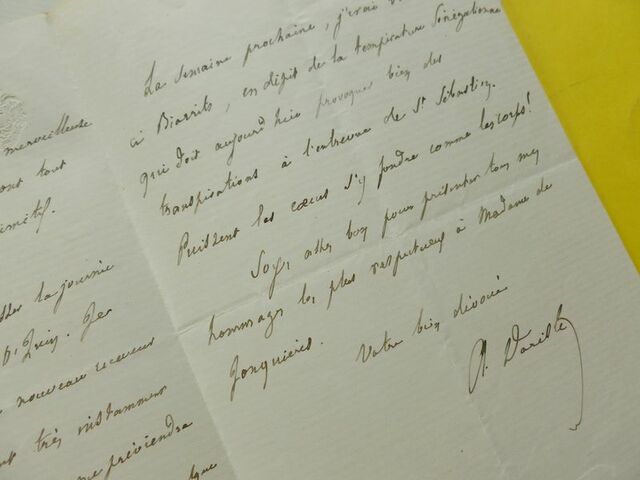 merveilleuse
ont tout
imitif.
la journée
Juin. Je
nouveau receveur
très instamment
préviendra
que
La semaine prochaine, j'irai
à Biarritz, en dépit de la température Sénégalienne
qui doit aujourd'hui provoquer bien des
transpirations à l'entrevue de St Sébastien.
Puissent les cœurs s'y fondre comme les corps!
Soyez assez bon pour présenter tous mes
hommages les plus respectueux à Madame de
Jonquières.
Votre bien dévoué